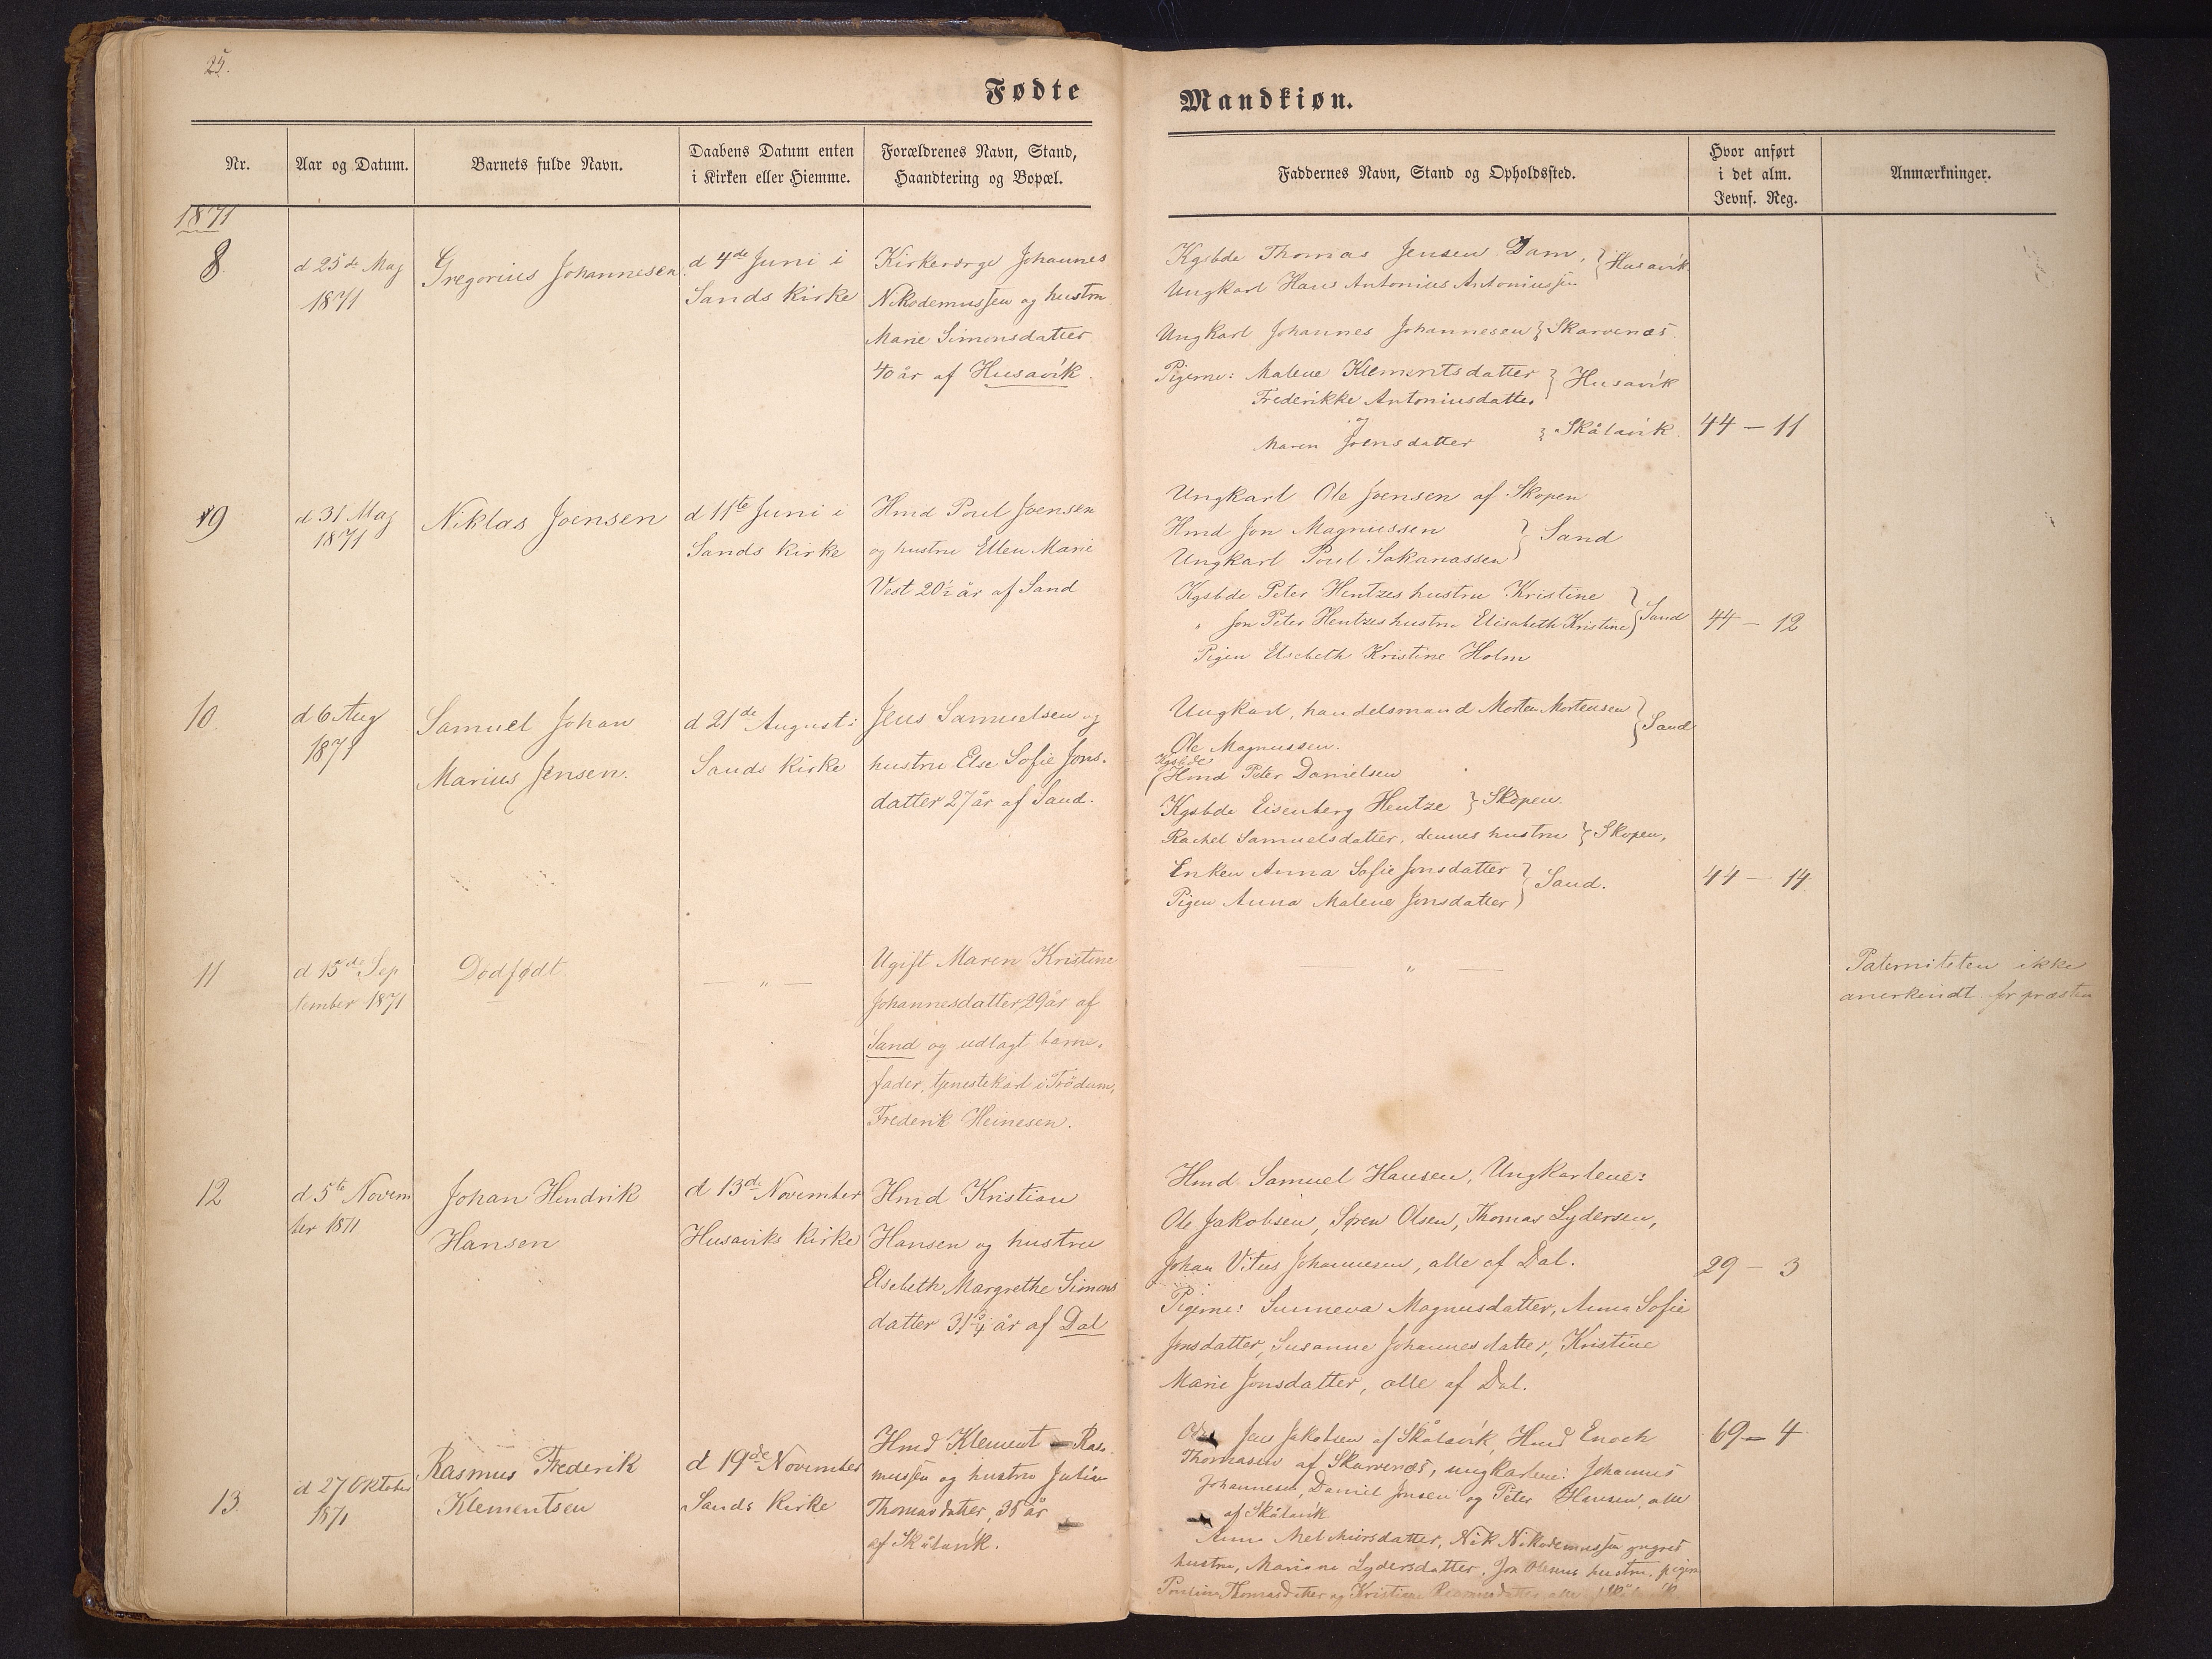 25.
Fødte Mandkiøn.
Nr.
Aar og Datum.
Barnets fulde Navn.
Daabens Datum enten
i Kirken eller Hiemme.
Forældrenes Navn, Stand,
Haandtering og Bopæl.
Faddernes Navn, Stand og Opholdssted.
Hvor anført
i det alm.
Jevnf. Reg.
Anmærkninger.
1871
8
d 25de Maj
1871
Gregorius Johannesen
d 4de Juni i
Sands Kirke
Kirkeværge Johannes
Nikodemussen og hustru
Marie Simonsdatter
40 år af Husavík.
Kgsbde Thomas Jensen Dam, } Husavík
Ungkarl Hans Antonius Antoniussen
Ungkarl Johannes Johannesen } Skarvenæs
Pigerne: Malene Klementsdatter } Husavík
Frederikke Antoniusdatter
og
Maren Joensdatter } Skålavík
44 — 11
9
d 31 Maj
1871
Niklas Joensen
d 11te Juni i
Sands Kirke
Hmd Poul Joensen
og hustru Ellen Marie
Vest 20½ år af Sand
Ungkarl Ole Joensen af Skopen
Hmd Jon Magnussen } Sand
Ungkarl Poul Sakariassen
Kgsbde Peter Hentzes hustru Kristine
" Jon Peter Hentzes hustru Elisabeth Kristine } Sand
Pigen Elsebeth Kristine Holm
44 — 12
10
d 6 Aug
1871
Samuel Johan
Marius Jensen.
d 21de August i
Sands Kirke
Jens Samuelsen og
hustru Else Sofie Jons-
datter 27 år af Sand.
Ungkarl, handelsmand Morten Mortensen } Sand
Ole Magnussen.
Kgsbde
Hmd Peter Danielsen
Kgsbde Eisenberg Hentze } Skopen.
Rachel Samuelsdatter, dennes hustru } Skopen.
Enken Anna Sofie Jonsdatter } Sand.
Pigen Anna Malene Jonsdatter
44 — 14
11
d 15de Sep
tember 1871
Dødfødt
— " —
Ugift Maren Kristine
Johannesdatter 29 år af
Sand og udlagt barne-
fader, tjenestekarl i Trödum,
Frederik Heinesen.
— " —
Paterniteten ikke
anerkendt for præsten
12
d 5te Novem
ber 1871
Johan Hendrik
Hansen
d 13de November
Husaviks Kirke
Hmd Kristian
Hansen og hustru
Elsebeth Margrethe Simons
datter 31¾ år af Dal
Hmd Samuel Hansen, Ungkarlene:
Ole Jakobsen, Søren Olsen, Thomas Lydersen,
Johan Vitus Johannesen, alle af Dal.
Pigerne: Sunneva Magnusdatter, Anna Sofie
Jonsdatter, Susanne Johannesdatter, Kristine
Marie Jonsdatter, alle af Dal.
29 — 3
13
d 27 Oktober
1871
Rasmus Frederik
Klementsen
d 19de November
Sands Kirke
Hmd Klement Ras-
mussen og hustru Juliane
Thomasdatter, 35 år
af Skålavík.
Jens Jakobsen af Skålavík, Hmd Enoch
Thomasen af Skarvenæs, ungkarlene: Johannes
Johannesen, Daniel Jensen og Peter Hansen, alle
af Skålavík
Anne Melchiorsdatter, Nik Nikodemussens
hustru, Mariane Lydersdatter, Jon hustru, pigen
Thomasdatter og Kristiane Rasmusdatter, alle
69 — 4